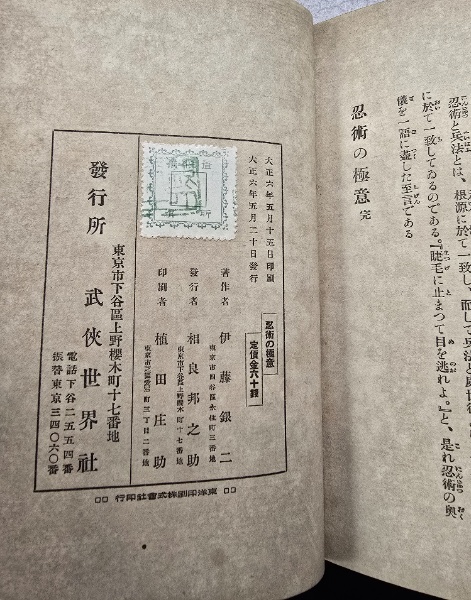 忍術と兵法とは、根源に於て一致し、而して兵法と處世術
に於て一致してゐるのである。『睫毛に止まつて目を逃れよ。』と、是れ忍術の奥
儀を一語に壷した至言である
忍術の極意 完
大正六年五月十五日印刷
大正六年五月二十日發行
忍術の極意
定價金六十錢
著作者 伊藤銀二
發行者 相良邦之助
東京市下谷區上野櫻木町十七番地
印刷者 植田庄助
發行所
東京市下谷區上野櫻木町十七番地
武俠世界社
電話下谷二五五四番
振替東京三四〇六〇番
東洋印刷株式會社印行